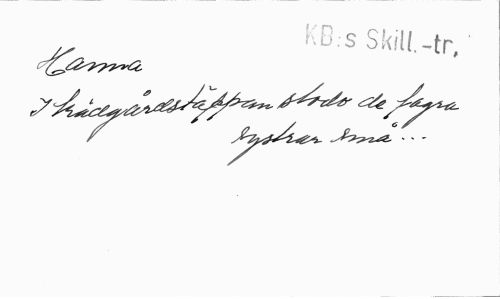 KB:s Skill.-tr.
Hanna
I trädgårdstäppan stodo de fagra
systrar små...